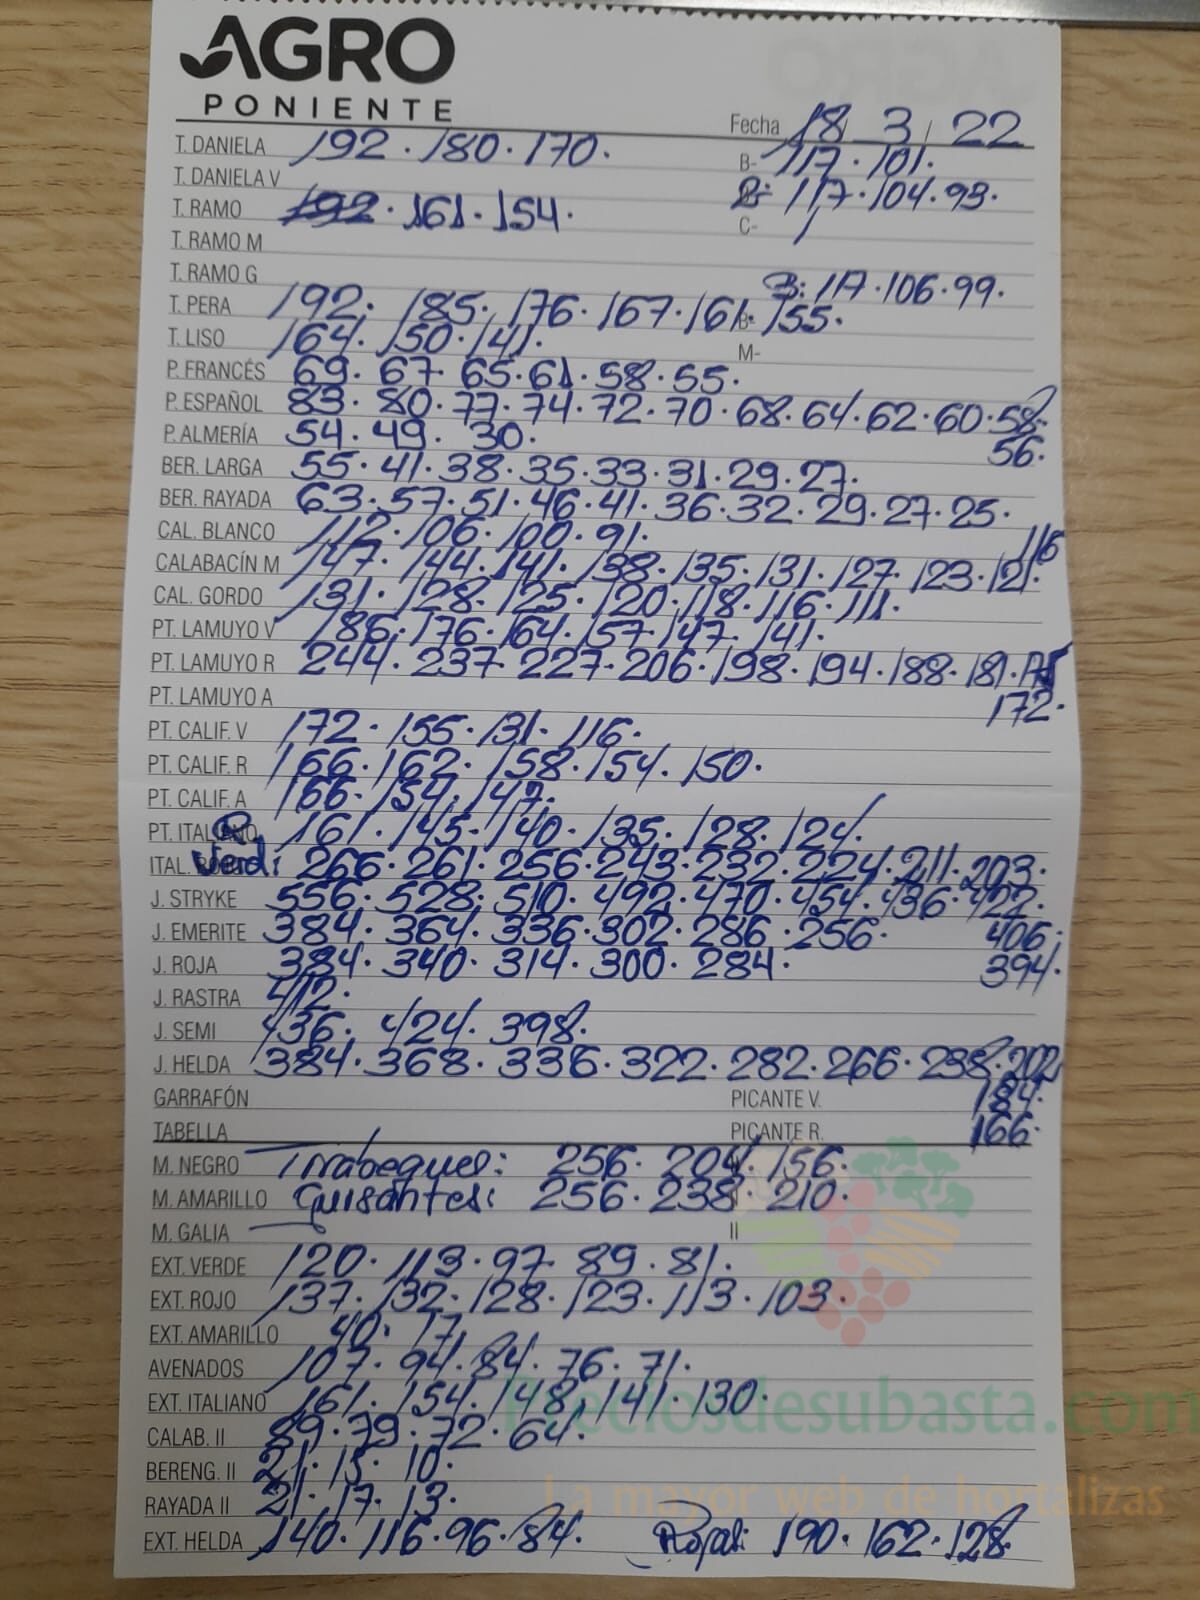 AGRO
PONIENTE
Fecha 18/ 3 / 22
T. DANIELA 192 · 180 · 170. B- 117 · 101.
T. DANIELA V B: 117 · 104 · 93.
T. RAMO 192 · 161 · 154. C- /
T. RAMO M
T. RAMO G B: 117 · 106 · 99.
T. PERA 192 · 185 · 176 · 167 · 161 · 155. B-
T. LISO 164 · 150 · 141. M-
P. FRANCÉS 69 · 67 · 65 · 61 · 58 · 55.
P. ESPAÑOL 83 · 80 · 77 · 74 · 72 · 70 · 68 · 64 · 62 · 60 · 58 ·
P. ALMERÍA 54 · 49 · 30. 56.
BER. LARGA 55 · 41 · 38 · 35 · 33 · 31 · 29 · 27.
BER. RAYADA 63 · 57 · 51 · 46 · 41 · 36 · 32 · 29 · 27 · 25.
CAL. BLANCO 112 · 106 · 100 · 91. 116
CALABACÍN M 147 · 144 · 141 · 138 · 135 · 131 · 127 · 123 · 121.
CAL. GORDO 131 · 128 · 125 · 120 · 118 · 116 · 111.
PT. LAMUYO V 186 · 176 · 164 · 157 · 147 · 141.
PT. LAMUYO R 244 · 237 · 227 · 206 · 198 · 194 · 188 · 181 ·
PT. LAMUYO A 172.
PT. CALIF. V 172 · 155 · 131 · 116.
PT. CALIF. R 166 · 162 · 158 · 154 · 150.
PT. CALIF. A 166 · 154 · 147.
PT. ITALIANO R 161 · 145 · 140 · 135 · 128 · 124.
ITAL. Verd: 266 · 261 · 256 · 243 · 232 · 224 · 211 · 203.
J. STRYKE 556 · 528 · 510 · 492 · 470 · 454 · 436 · 422.
J. EMERITE 384 · 364 · 336 · 302 · 286 · 256. 406.
J. ROJA 384 · 340 · 314 · 300 · 284. 394.
J. RASTRA 412.
J. SEMI 436 · 424 · 398.
J. HELDA 384 · 368 · 336 · 322 · 282 · 266 · 238 · 202
GARRAFÓN PICANTE V. 184.
TABELLA PICANTE R. 166.
M. NEGRO Tirabeques: 256 · 204 · 156.
M. AMARILLO Guisantes: 256 · 238 · 210.
M. GALIA II
EXT. VERDE 120 · 113 · 97 · 89 · 81.
EXT. ROJO 137 · 132 · 128 · 123 · 113 · 103.
EXT. AMARILLO 40 · 17
AVENADOS 107 · 94 · 84 · 76 · 71.
EXT. ITALIANO 161 · 154 · 148 · 141 · 130.
Preciosdesubasta.com
CALAB. II 89 · 79 · 72 · 64.
BERENG. II 21 · 15 · 10.
La mayor web de hortalizas
RAYADA II 21 · 17 · 13.
EXT. HELDA 140 · 116 · 96 · 84. Roja: 190 · 162 · 128.